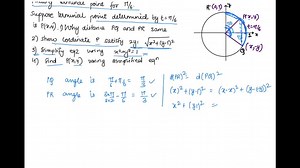 terminal point for π/6
Suppose terminal point determined by t = π/6
is P(x,y), Why distance PQ and PR same
2) show coordinate P satisfy 2y = √x²+(y-1)²
3) simplify eqn using x²+y²=1
4) find P(x,y) using simplified eqn
PQ angle is π/6+π/6 = π/3
PR angle is π/2 - π/6 = π/3
d(PR)² = d(PQ)²
(x)²+(y-1)² = (x-x)²+(y-(-y))²
x²+(y-1)² =
R(0,1)
P(x,y)